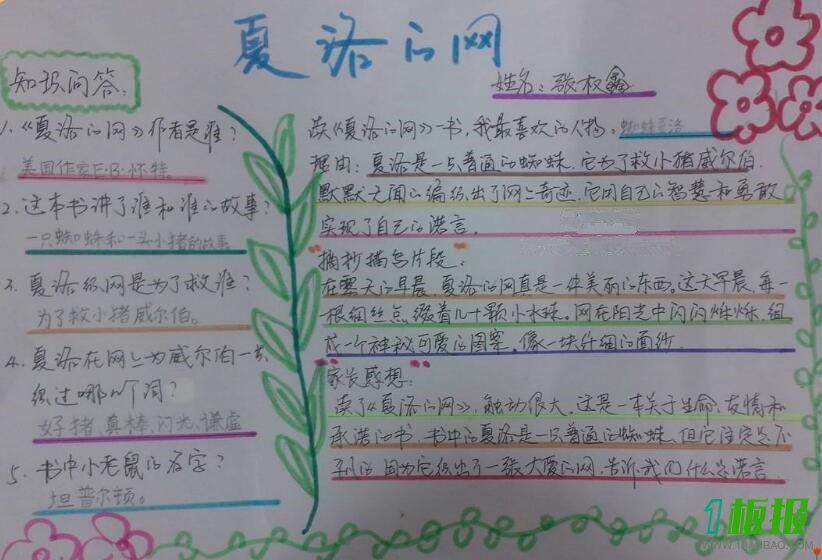 夏洛的网
姓名：张权鑫
知识问答：
1.《夏洛的网》作者是谁？
美国作家E·B·怀特。
2.这本书讲了谁和谁的故事？
一只蜘蛛和一头小猪的故事
3.夏洛织网是为了救谁？
为了救小猪威尔伯。
4.夏洛在网上为威尔伯一共
织过哪几个词？
好猪、真棒、闪光、谦虚
5.书中小老鼠的名字？
坦普尔顿。
读《夏洛的网》一书，我最喜欢的人物：蜘蛛夏洛
理由：夏洛是一只普通的蜘蛛，它为了救小猪威尔伯，
默默无闻的编织出了网上奇迹，它用自己的智慧和勇敢
实现了自己的诺言。
摘抄描写片段：
在雾天的早晨，夏洛的网真是一件美丽的东西。这天早晨，每一
根细丝点缀着几十颗小水珠。网在阳光中闪闪烁烁，组
成一个神秘可爱的图案，像一块纤细的面纱。
家长感想：
读了《夏洛的网》，触动很大，这是一本关于生命、友情和
承诺的书，书中的夏洛是一只普通的蜘蛛，但它注定是不
的因为它织出了一张大爱的网，告诉我们什么是诺言
1板报
WWW.1BANBAO.COM